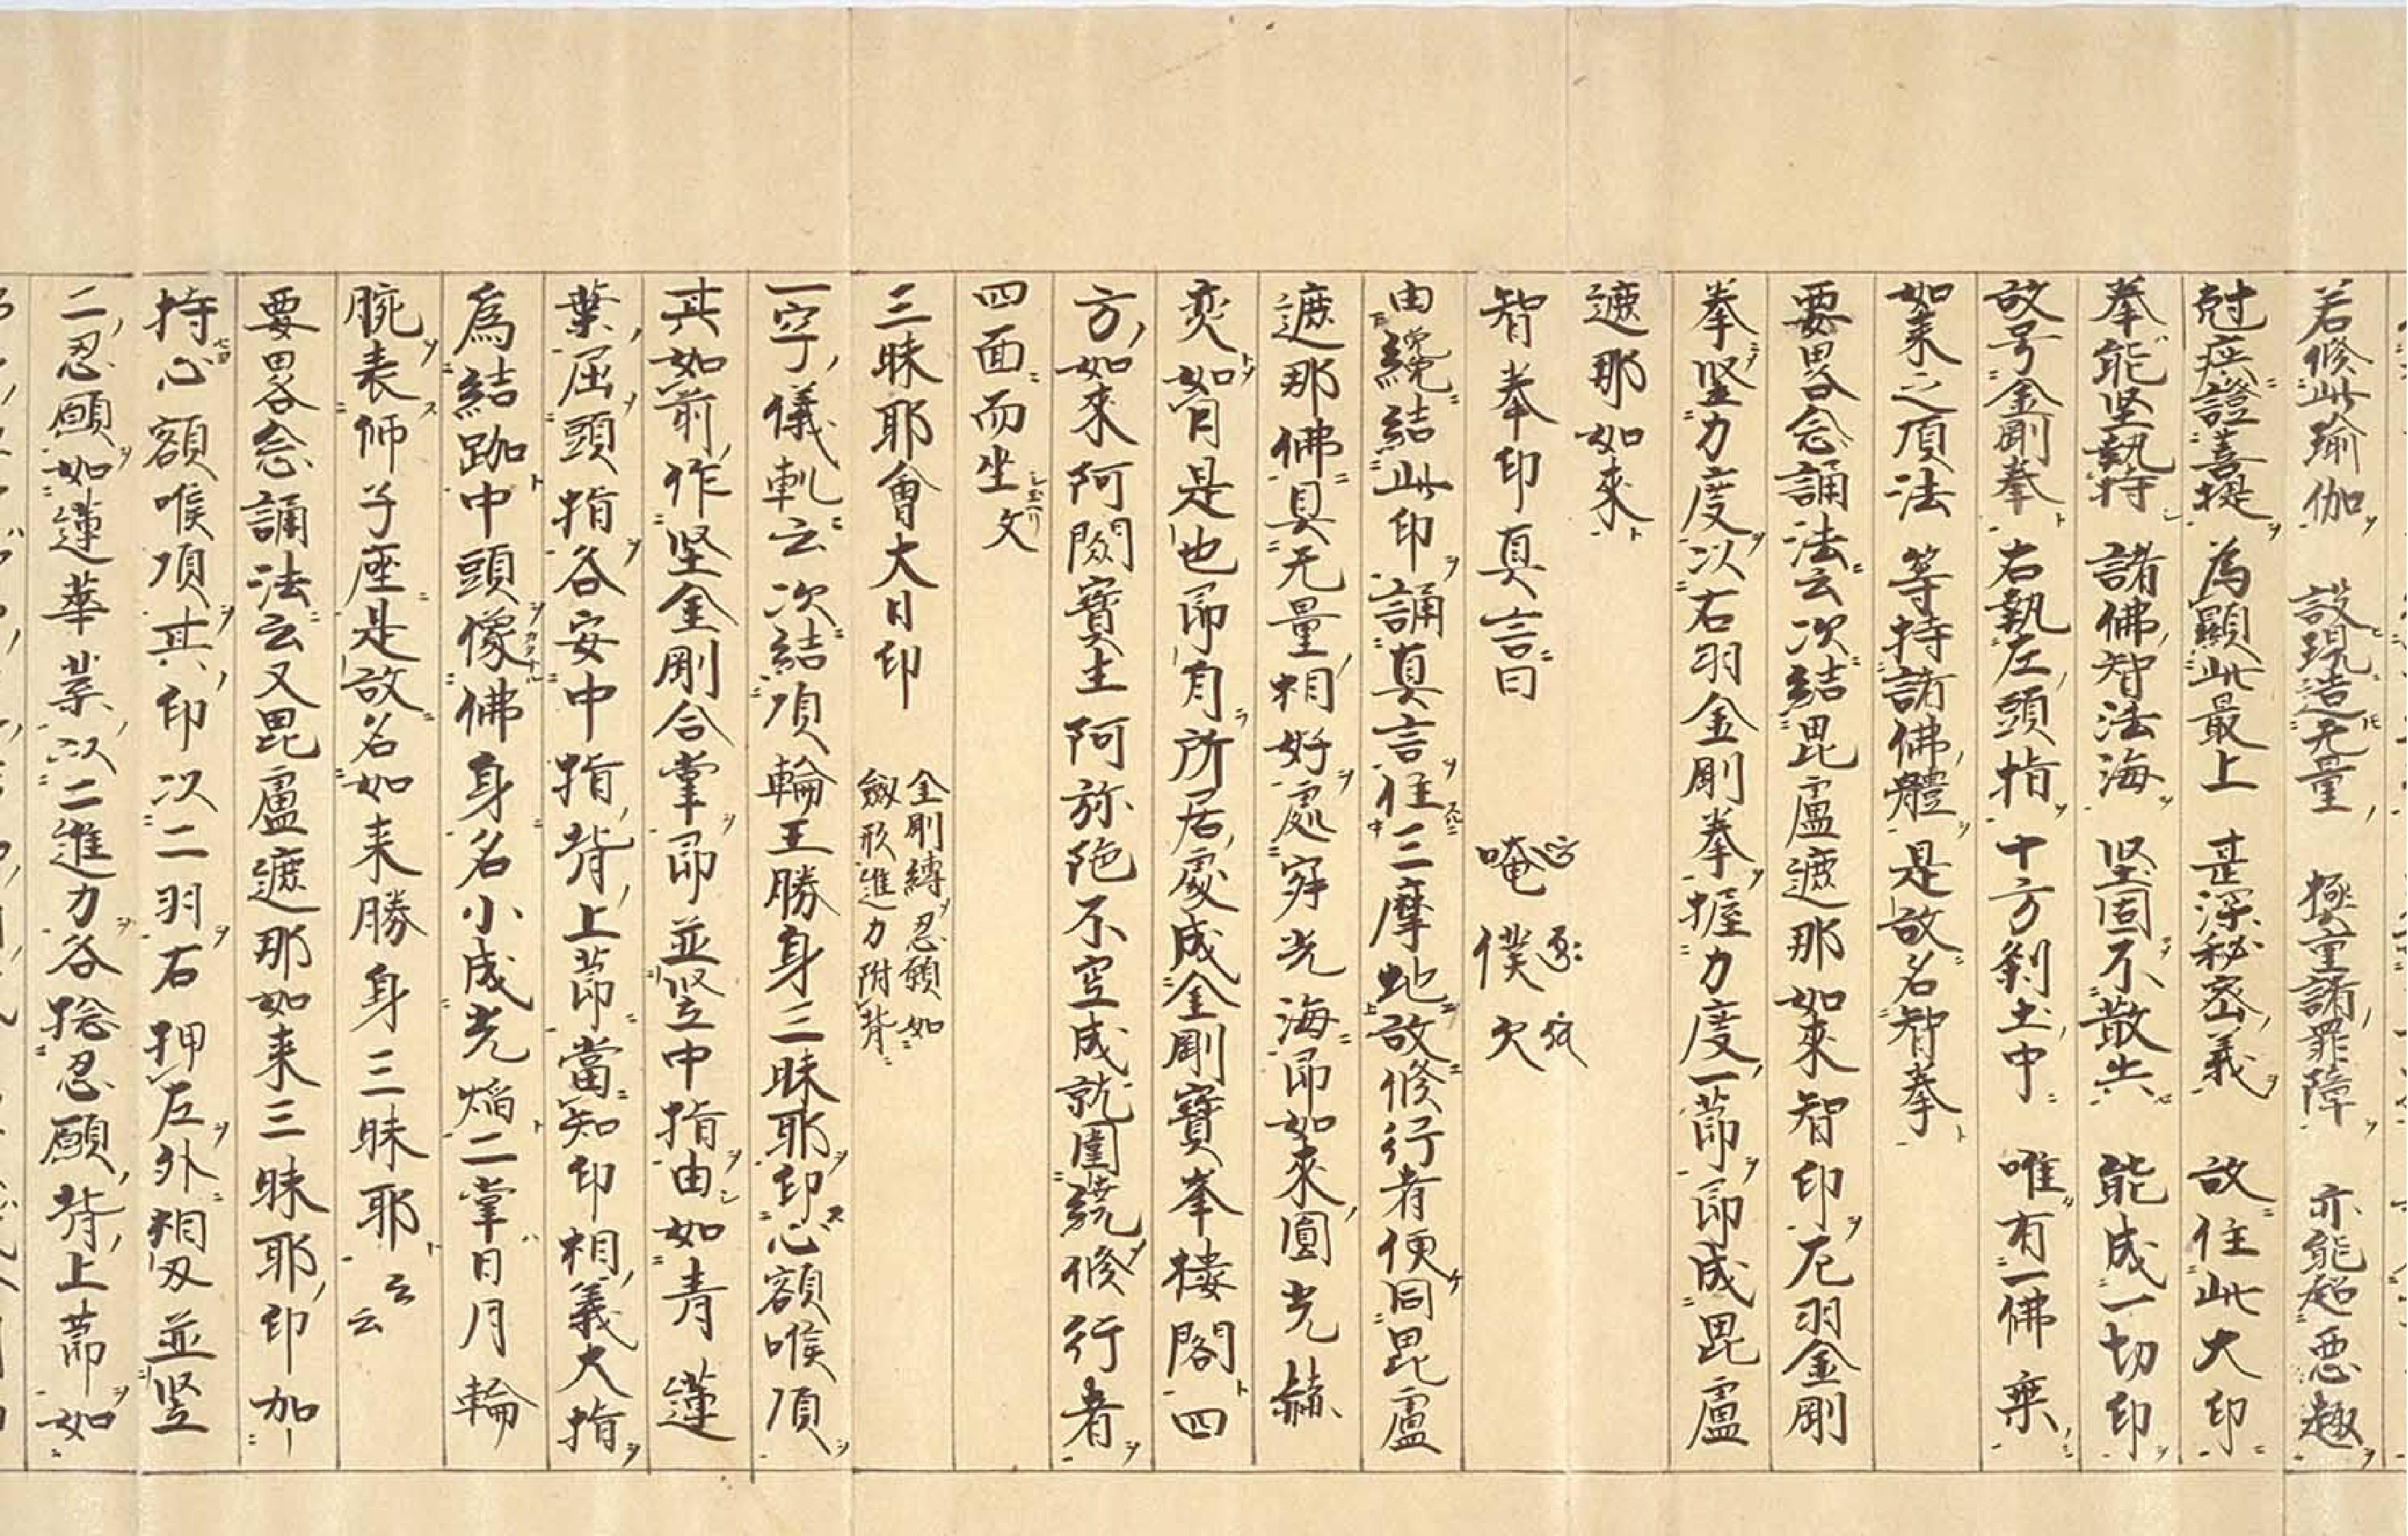 若修此瑜伽 設現造无量 極重諸罪障 亦能超惡趣
尅疾證菩提 為顯此最上 甚深秘密義 故住此大印
拳能坚執持 諸佛智法海 坚固不散失 能成一切印
故号金剛拳 右執左頭指 十方剎土中 唯有一佛乗
如来之頂法 等持諸佛軆 是故名智拳
要畧念誦法云次結毘盧遮那如來智印左羽金剛
拳坚力度以右羽金剛拳握力度一莭即成毘盧
遮那如來
智拳印真言曰 唵 僕 欠
由纔結此印誦真言住三摩地故修行者便同毘盧
遮那佛具无量相好處寂光海即如來圓光赫
奕如月是也即自所居處成金剛寳峯樓閣四
方如來阿閦寳生阿弥陁不空成就圍繞修行者
四面而坐文
三昧耶會大日印 金剛縛忍願如
劔形進力附背
一字儀軌云次結頂輪王勝身三昧耶印心額喉頂
其如前作坚金剛合掌即並竖中指由如青蓮
葉屈頭指各安中指背上莭當知印相義大指
為結跏中頭像佛身名小成光焔二掌日月輪
腕表師子座是故名如来勝身三昧耶云云
要畧念誦法云又毘盧遮那如来三昧耶印加
持心額喉頂其印以二羽右押左外相叉並竖
二忍願如蓮華葉以二進力各捻忍願背上莭如